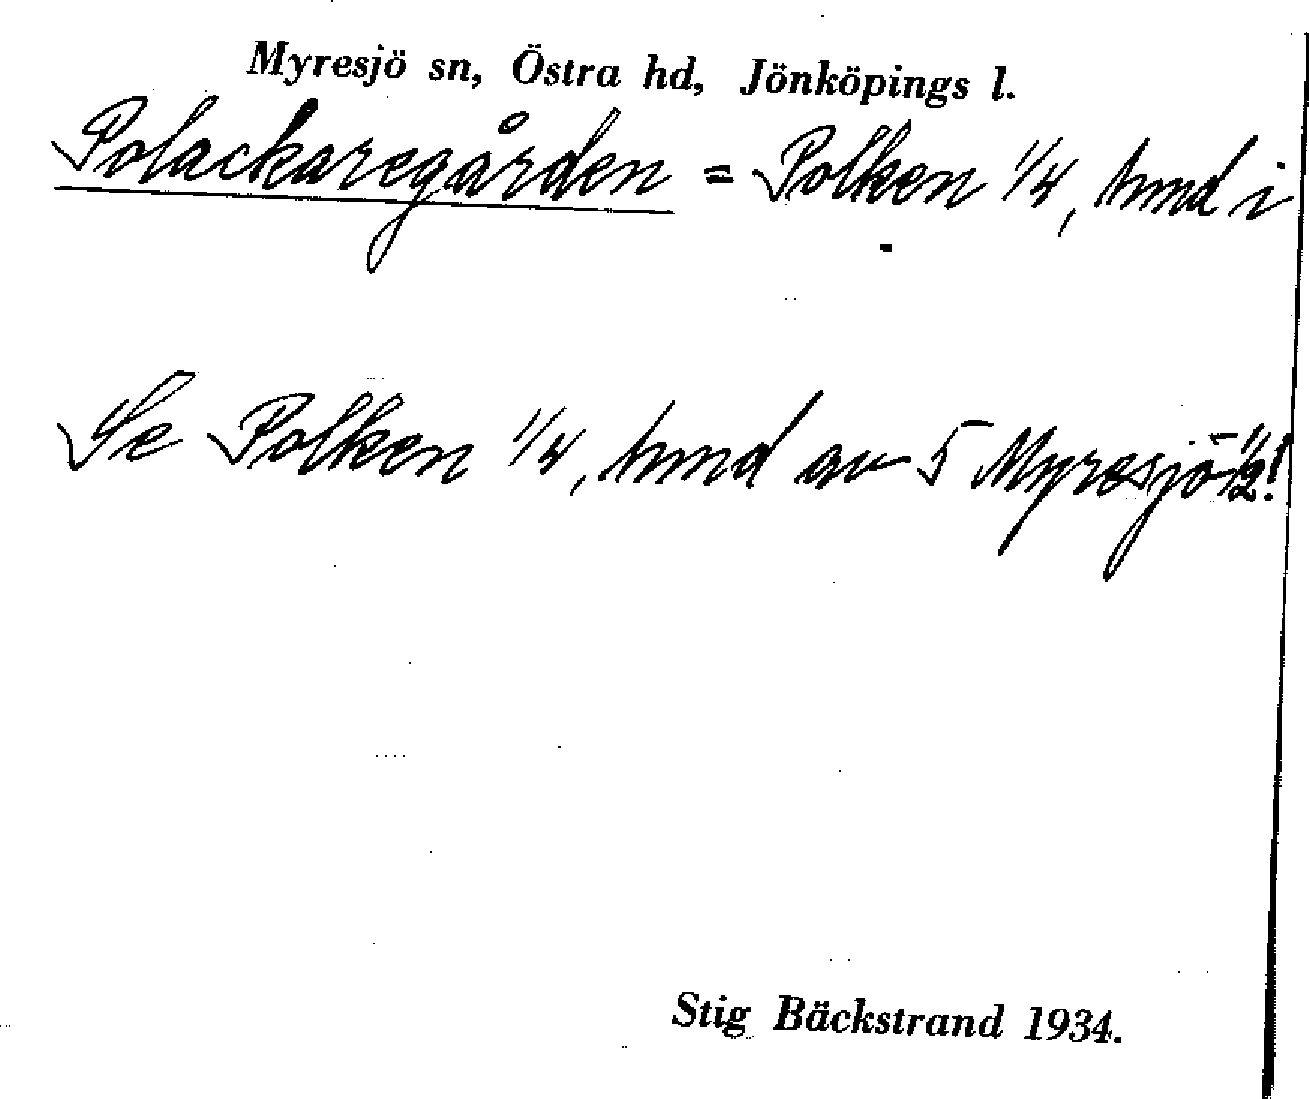 Myresjö sn, Östra hd, Jönköpings l.
Polackaregården = Polken 1/4, hmd i
Se Polken 1/4, hmd av 5 Myresjö 1/2!
Stig Bäckstrand 1934.